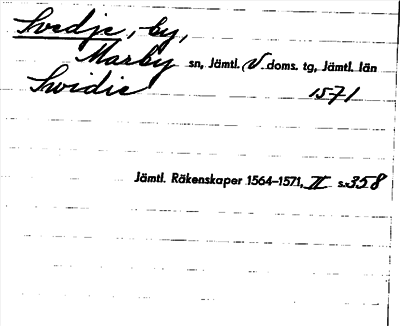 Svedje, by,
Marby sn, Jämtl. V. doms. tg, Jämtl. län
Svidie 1571
Jämtl. Räkenskaper 1564–1571, II s. 358